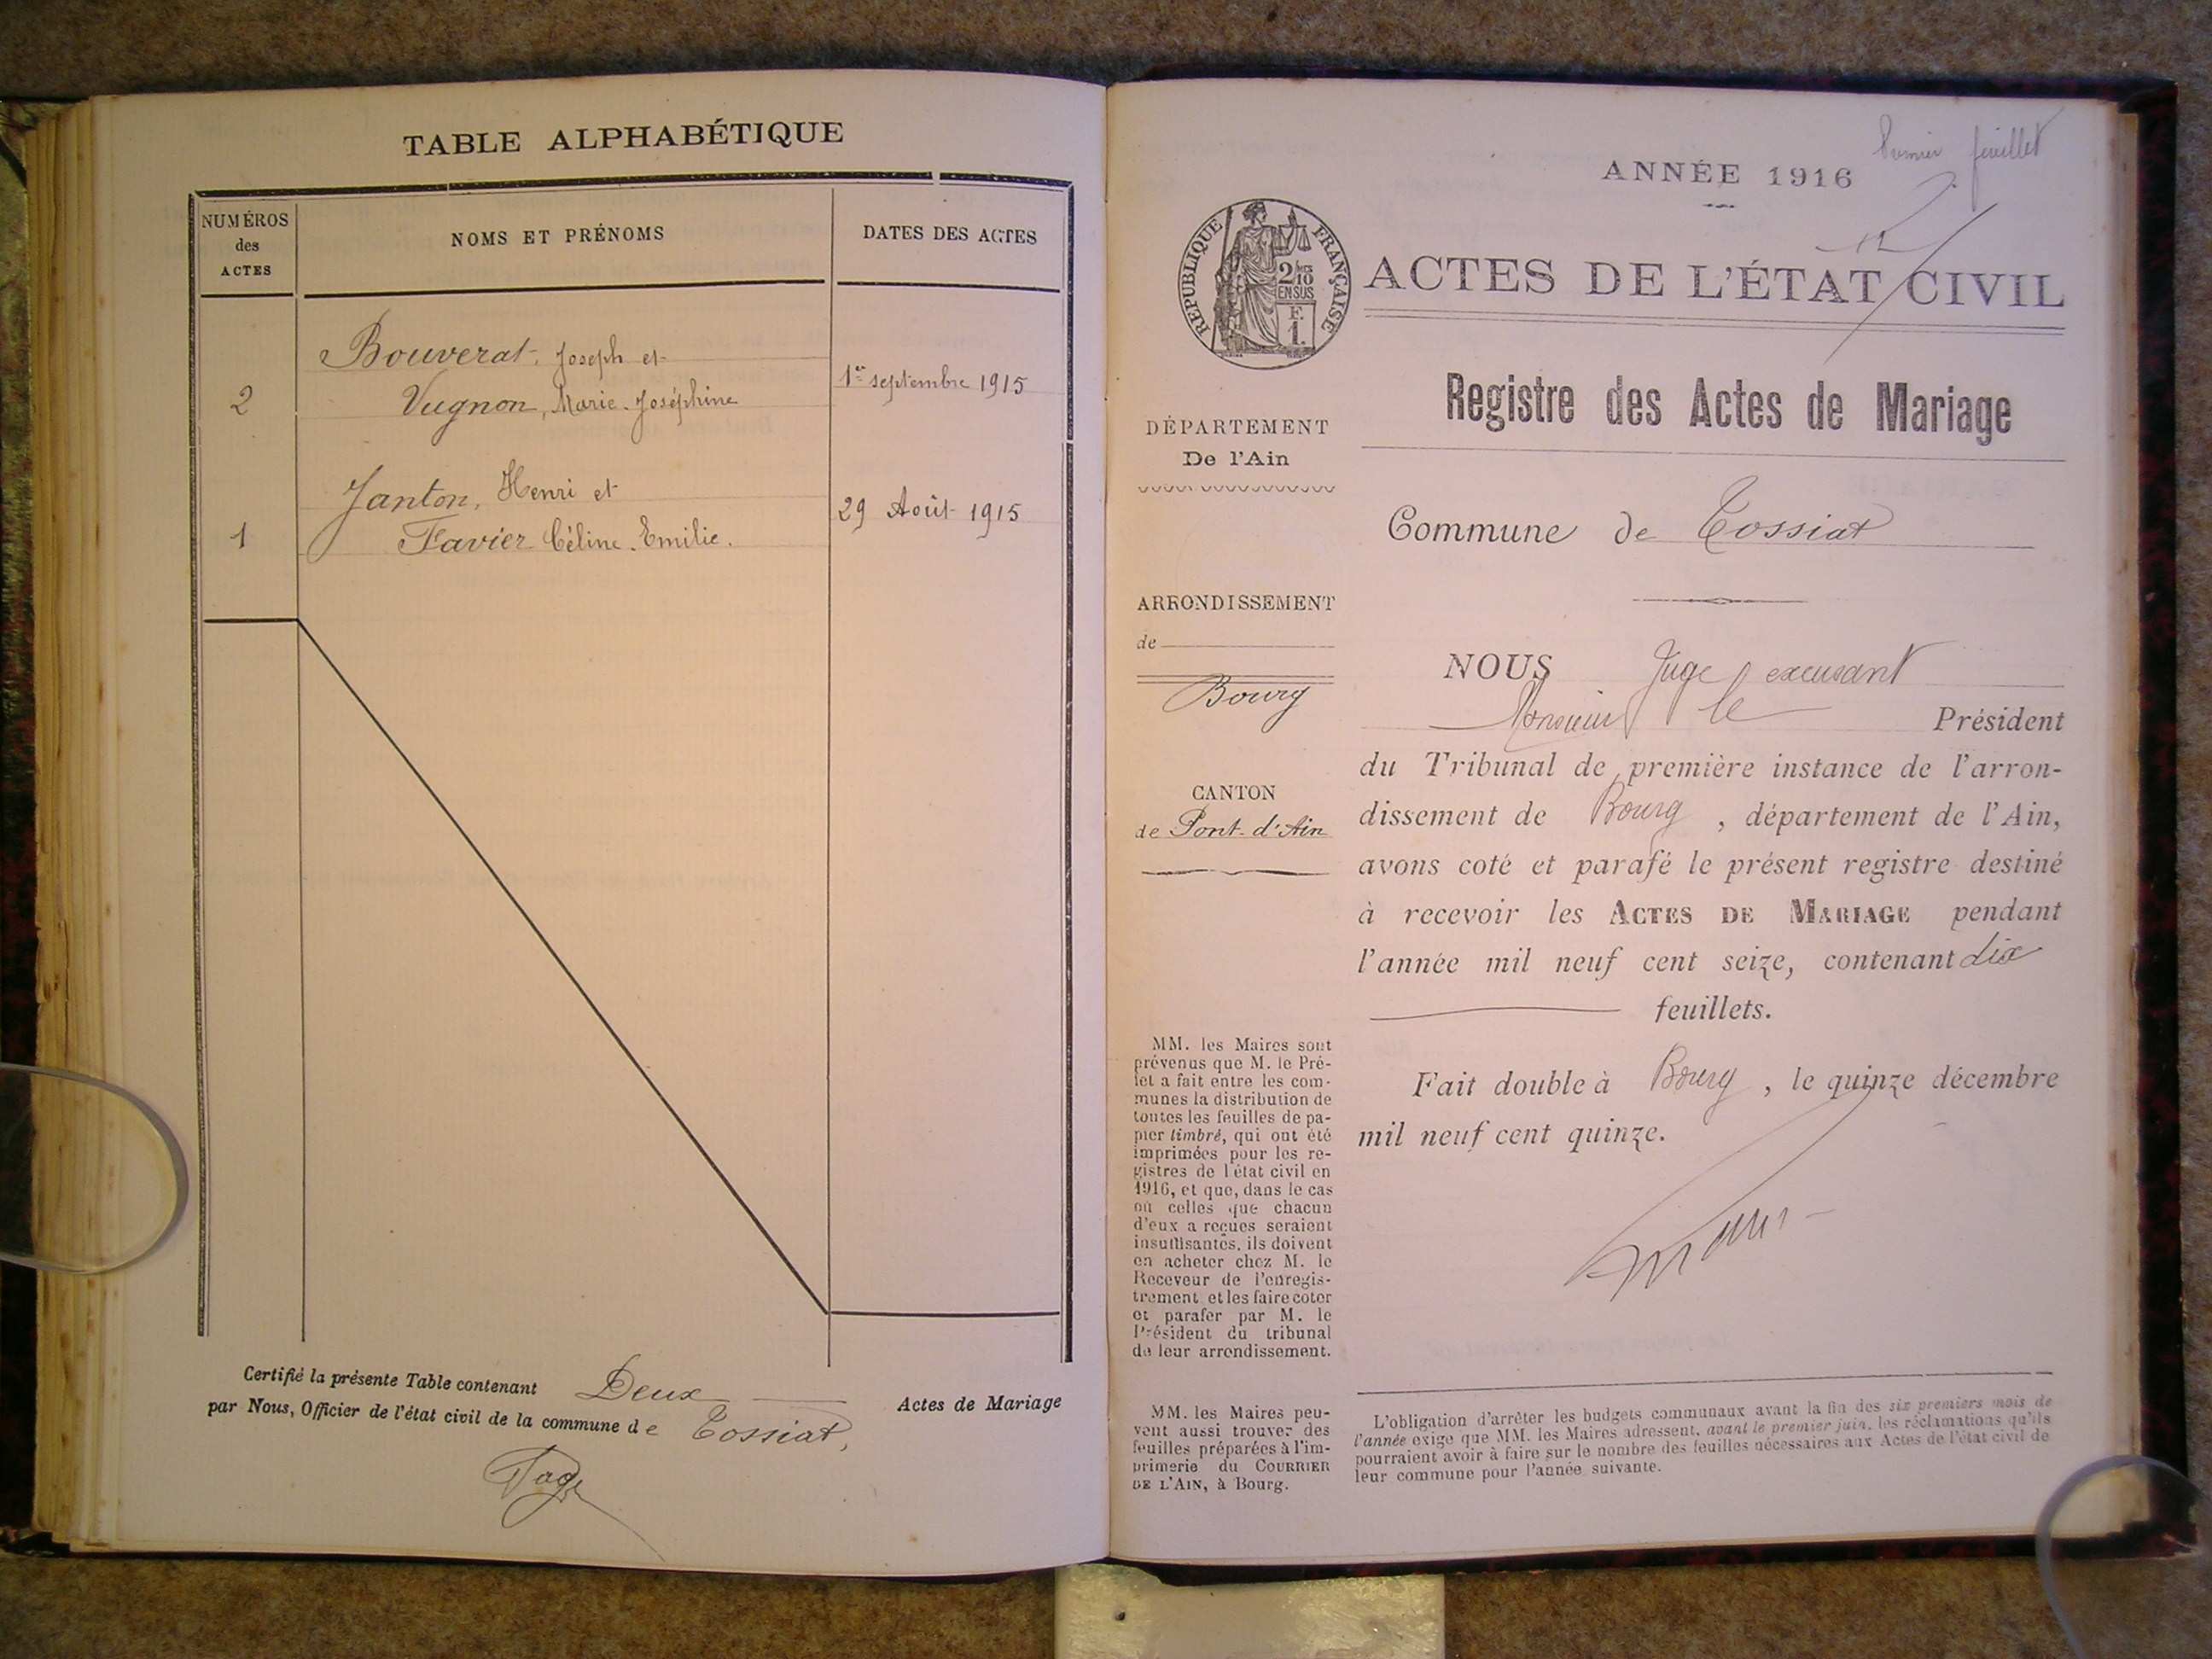 TABLE ALPHABÉTIQUE
NUMÉROS
des
ACTES
NOMS ET PRÉNOMS
DATES DES ACTES
2
Bouverat, Joseph et
Vugnon, Marie-Joséphine
1er septembre 1915
1
Janton, Henri et
Favier Céline-Emilie.
29 Août 1915
Certifié la présente Table contenant Deux Actes de Mariage
par Nous, Officier de l'état civil de la commune de Tossiat,
Premier feuillet
ANNÉE 1916
RÉPUBLIQUE FRANÇAISE
2/10
EN SUS
F.
1.
ACTES DE L'ÉTAT CIVIL
Registre des Actes de Mariage
DÉPARTEMENT
De l'Ain
Commune de Tossiat
ARRONDISSEMENT
de
Bourg
CANTON
de Pont-d'Ain
NOUS Juge excusant
Monsieur le Président
du Tribunal de première instance de l'arron-
dissement de Bourg, département de l'Ain,
avons coté et parafé le présent registre destiné
à recevoir les ACTES DE MARIAGE pendant
l'année mil neuf cent seize, contenant dix
feuillets.
Fait double à Bourg, le quinze décembre
mil neuf cent quinze.
MM. les Maires sont
prévenus que M. le Pré-
fet a fait entre les com-
munes la distribution de
toutes les feuilles de pa-
pier timbré, qui ont été
imprimées pour les re-
gistres de l'état civil en
1916, et que, dans le cas
où celles que chacun
d'eux a reçues seraient
insuffisantes, ils doivent
en acheter chez M. le
Receveur de l'enregis-
trement et les faire coter
et parafer par M. le
Président du tribunal
de leur arrondissement.
MM. les Maires peu-
vent aussi trouver des
feuilles préparées à l'im-
primerie du COURRIER
DE L'AIN, à Bourg.
L'obligation d'arrêter les budgets communaux avant la fin des six premiers mois de
l'année exige que MM. les Maires adressent, avant le premier juin, les réclamations qu'ils
pourraient avoir à faire sur le nombre des feuilles nécessaires aux Actes de l'état civil de
leur commune pour l'année suivante.